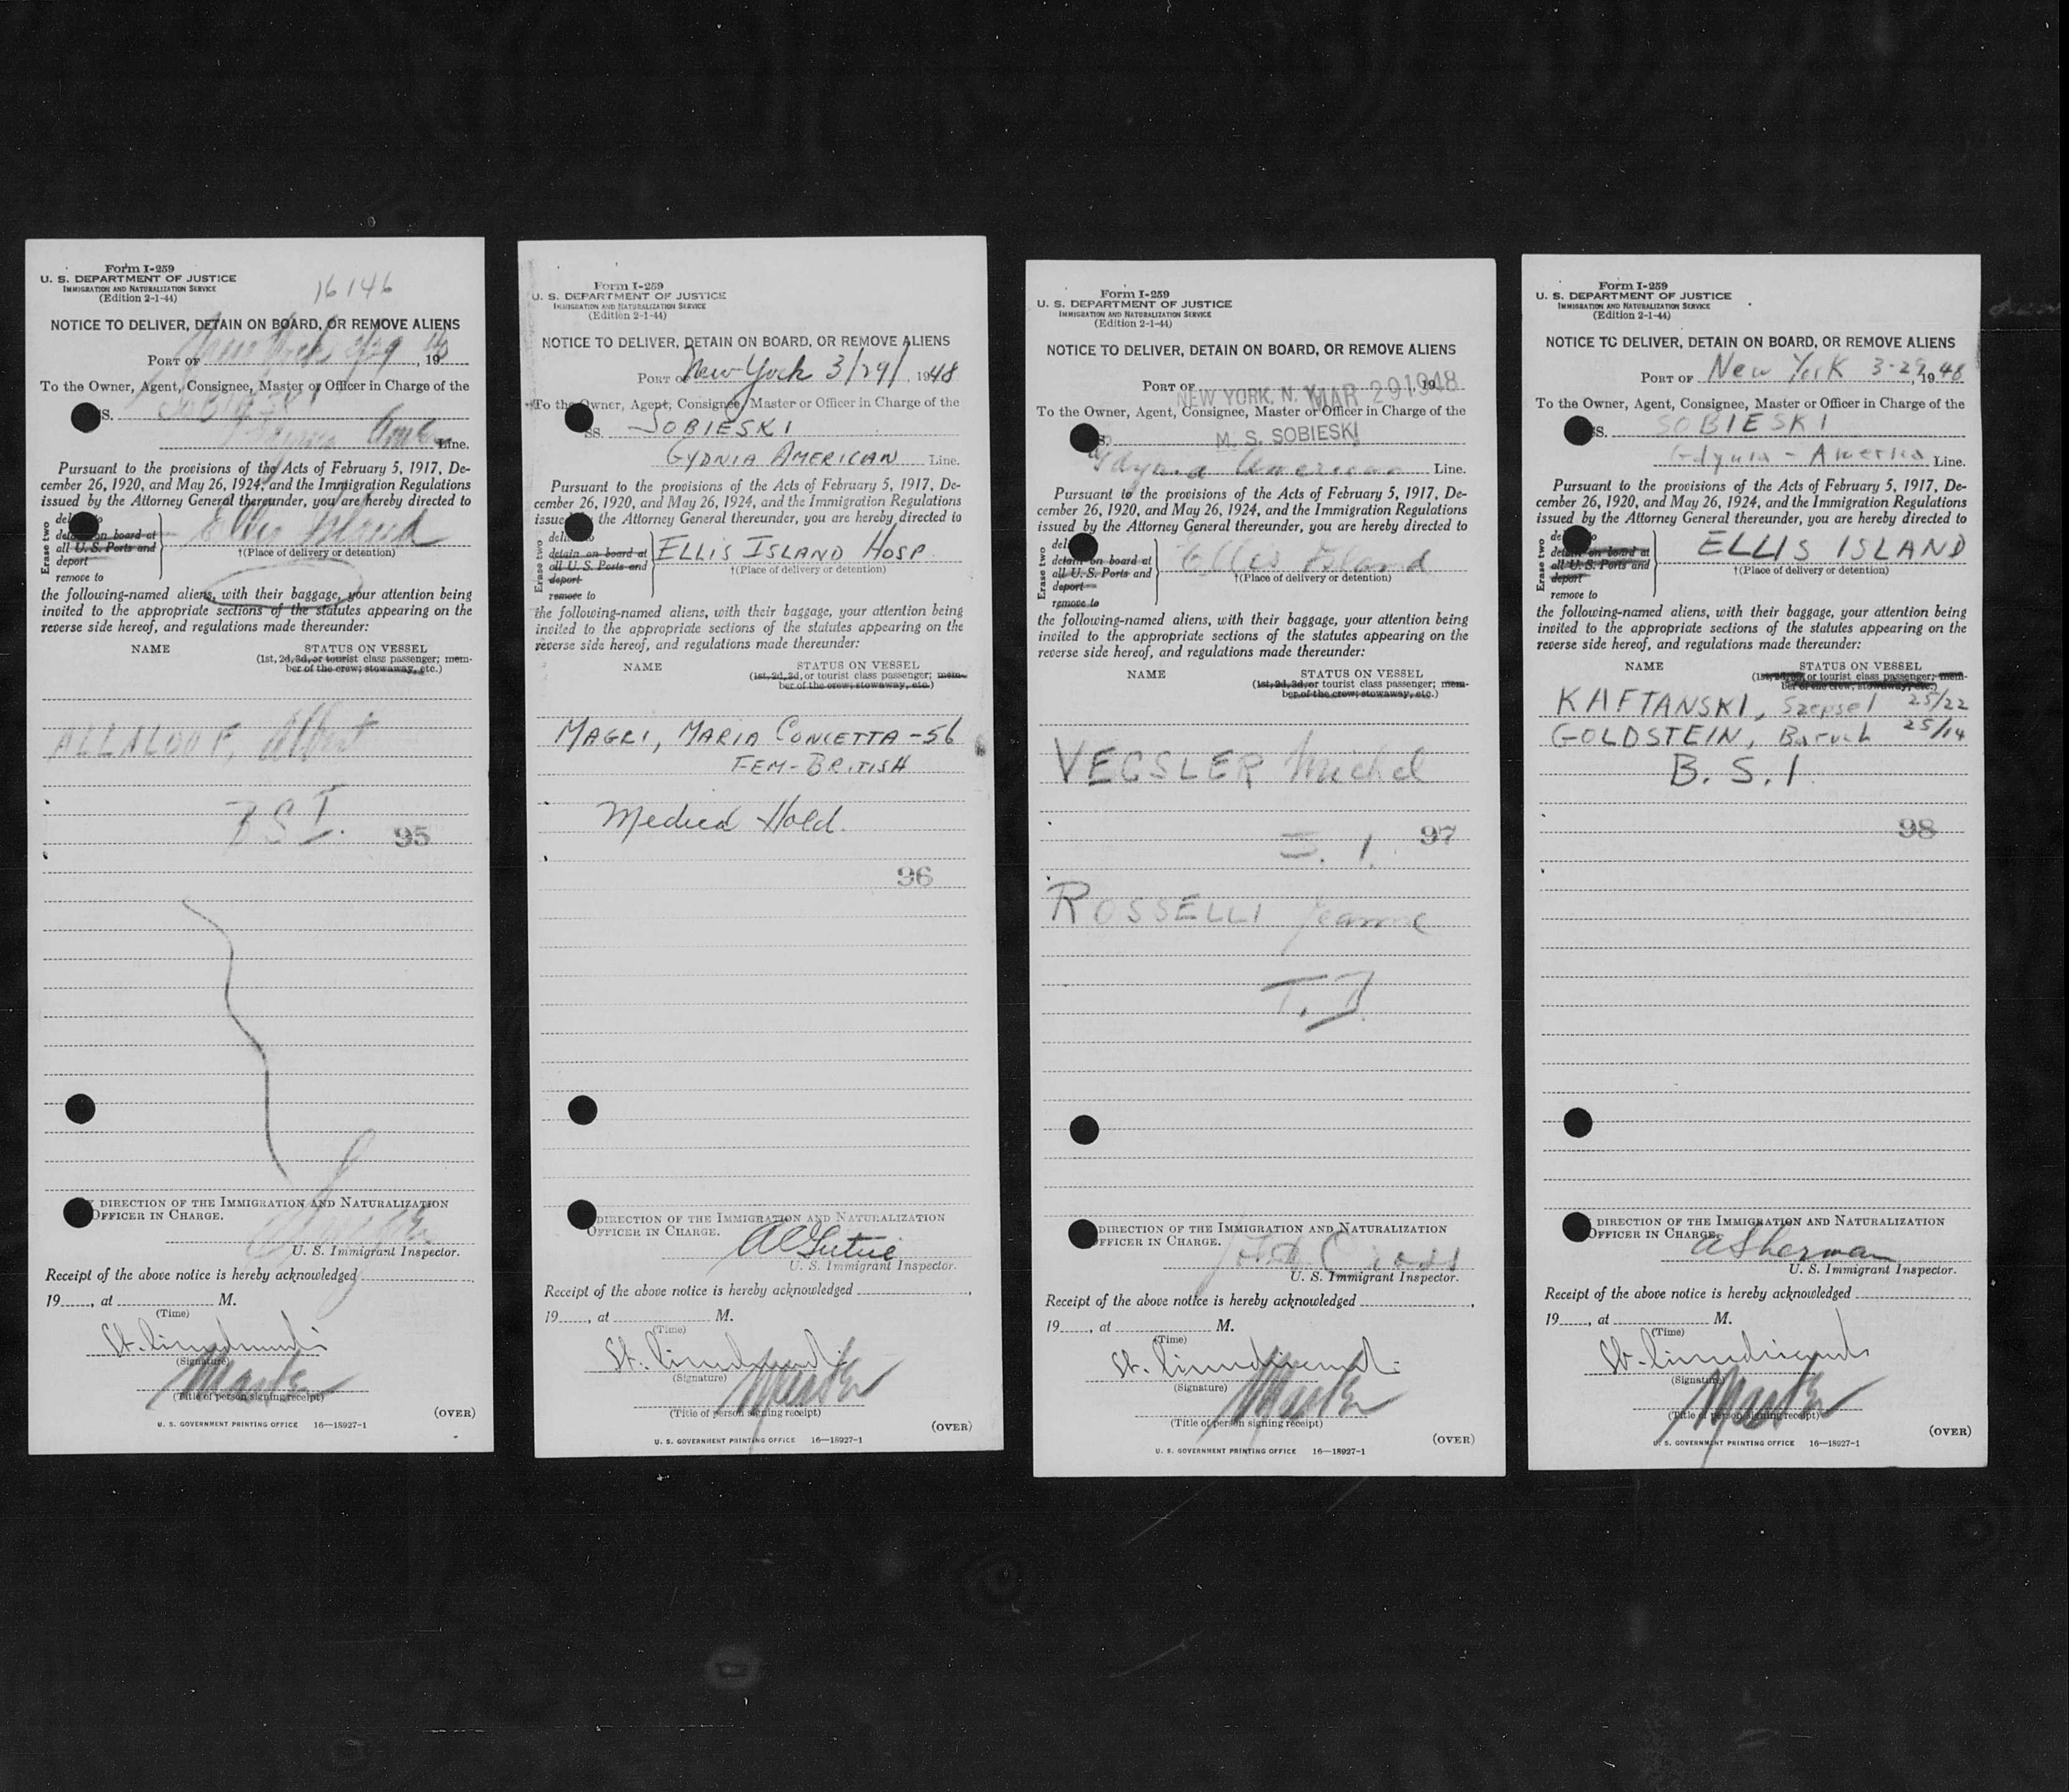 Form I-259
U. S. DEPARTMENT OF JUSTICE
IMMIGRATION AND NATURALIZATION SERVICE
(Edition 2-1-44)
16146
NOTICE TO DELIVER, DETAIN ON BOARD, OR REMOVE ALIENS
PORT OF New York 3/29, 19
To the Owner, Agent, Consignee, Master or Officer in Charge of the
SOBIESKI
Line.
Pursuant to the provisions of the Acts of February 5, 1917, De-
cember 26, 1920, and May 26, 1924, and the Immigration Regulations
issued by the Attorney General thereunder, you are hereby directed to
Erase two
detain on board at
all U. S. Ports and
deport
remove to
Ellis Island
†(Place of delivery or detention)
the following-named aliens, with their baggage, your attention being
invited to the appropriate sections of the statutes appearing on the
reverse side hereof, and regulations made thereunder:
NAME STATUS ON VESSEL
(1st, 2d, 3d, or tourist class passenger; mem-
ber of the crew; stowaway, etc.)
ALLALOUF, Albert
BSI.
95
DIRECTION OF THE IMMIGRATION AND NATURALIZATION
OFFICER IN CHARGE.
U. S. Immigrant Inspector.
Receipt of the above notice is hereby acknowledged
19____, at ____ M.
(Time)
(Signature)
Master
(Title of person signing receipt)
(OVER)
U. S. GOVERNMENT PRINTING OFFICE 16—18927-1
Form I-259
U. S. DEPARTMENT OF JUSTICE
IMMIGRATION AND NATURALIZATION SERVICE
(Edition 2-1-44)
NOTICE TO DELIVER, DETAIN ON BOARD, OR REMOVE ALIENS
PORT OF New York 3/29/, 1948
To the Owner, Agent, Consignee, Master or Officer in Charge of the
SS. SOBIESKI
GYDNIA AMERICAN Line.
Pursuant to the provisions of the Acts of February 5, 1917, De-
cember 26, 1920, and May 26, 1924, and the Immigration Regulations
issued by the Attorney General thereunder, you are hereby directed to
Erase two
detain on board at
all U. S. Ports and
deport
remove to
ELLIS ISLAND HOSP.
†(Place of delivery or detention)
the following-named aliens, with their baggage, your attention being
invited to the appropriate sections of the statutes appearing on the
reverse side hereof, and regulations made thereunder:
NAME STATUS ON VESSEL
(1st, 2d, 3d, or tourist class passenger; mem-
ber of the crew; stowaway, etc.)
MAGRI, MARIA CONCETTA - 56
FEM - BRITISH
Medical Hold.
96
DIRECTION OF THE IMMIGRATION AND NATURALIZATION
OFFICER IN CHARGE.
U. S. Immigrant Inspector.
Receipt of the above notice is hereby acknowledged
19____, at ____ M.
(Time)
(Signature)
Master
(Title of person signing receipt)
(OVER)
U. S. GOVERNMENT PRINTING OFFICE 16—18927-1
Form I-259
U. S. DEPARTMENT OF JUSTICE
IMMIGRATION AND NATURALIZATION SERVICE
(Edition 2-1-44)
NOTICE TO DELIVER, DETAIN ON BOARD, OR REMOVE ALIENS
PORT OF NEW YORK, N. Y. MAR 29 1948, 19
To the Owner, Agent, Consignee, Master or Officer in Charge of the
M. S. SOBIESKI
Gdynia American Line.
Pursuant to the provisions of the Acts of February 5, 1917, De-
cember 26, 1920, and May 26, 1924, and the Immigration Regulations
issued by the Attorney General thereunder, you are hereby directed to
Erase two
detain on board at
all U. S. Ports and
deport
remove to
Ellis Island
†(Place of delivery or detention)
the following-named aliens, with their baggage, your attention being
invited to the appropriate sections of the statutes appearing on the
reverse side hereof, and regulations made thereunder:
NAME STATUS ON VESSEL
(1st, 2d, 3d, or tourist class passenger; mem-
ber of the crew; stowaway, etc.)
VECSLER Michel
97
ROSSELLI Jeanne
DIRECTION OF THE IMMIGRATION AND NATURALIZATION
OFFICER IN CHARGE.
Cross
U. S. Immigrant Inspector.
Receipt of the above notice is hereby acknowledged
19____, at ____ M.
(Time)
(Signature)
Master
(Title of person signing receipt)
(OVER)
U. S. GOVERNMENT PRINTING OFFICE 16—18927-1
Form I-259
U. S. DEPARTMENT OF JUSTICE
IMMIGRATION AND NATURALIZATION SERVICE
(Edition 2-1-44)
NOTICE TO DELIVER, DETAIN ON BOARD, OR REMOVE ALIENS
PORT OF New York 3-29, 1948
To the Owner, Agent, Consignee, Master or Officer in Charge of the
SS. SOBIESKI
Gdynia - America Line.
Pursuant to the provisions of the Acts of February 5, 1917, De-
cember 26, 1920, and May 26, 1924, and the Immigration Regulations
issued by the Attorney General thereunder, you are hereby directed to
Erase two
detain on board at
all U. S. Ports and
deport
remove to
ELLIS ISLAND
†(Place of delivery or detention)
the following-named aliens, with their baggage, your attention being
invited to the appropriate sections of the statutes appearing on the
reverse side hereof, and regulations made thereunder:
NAME STATUS ON VESSEL
(1st, 2d, 3d, or tourist class passenger; mem-
ber of the crew; stowaway, etc.)
KAFTANSKI, Szepsel 25/22
GOLDSTEIN, Baruch 25/14
B. S. I.
98
DIRECTION OF THE IMMIGRATION AND NATURALIZATION
OFFICER IN CHARGE.
A Sherman
U. S. Immigrant Inspector.
Receipt of the above notice is hereby acknowledged
19____, at ____ M.
(Time)
(Signature)
Master
(Title of person signing receipt)
(OVER)
U. S. GOVERNMENT PRINTING OFFICE 16—18927-1